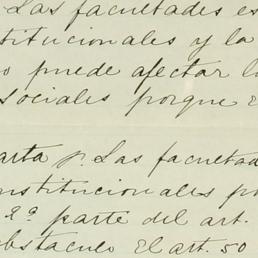 . Las facultades es
stitucionales y la
o puede afectar l
sociales porque e
arta p. Las facultad
nstitucionales po
2ª parte del art.
obstaculo El art. 50